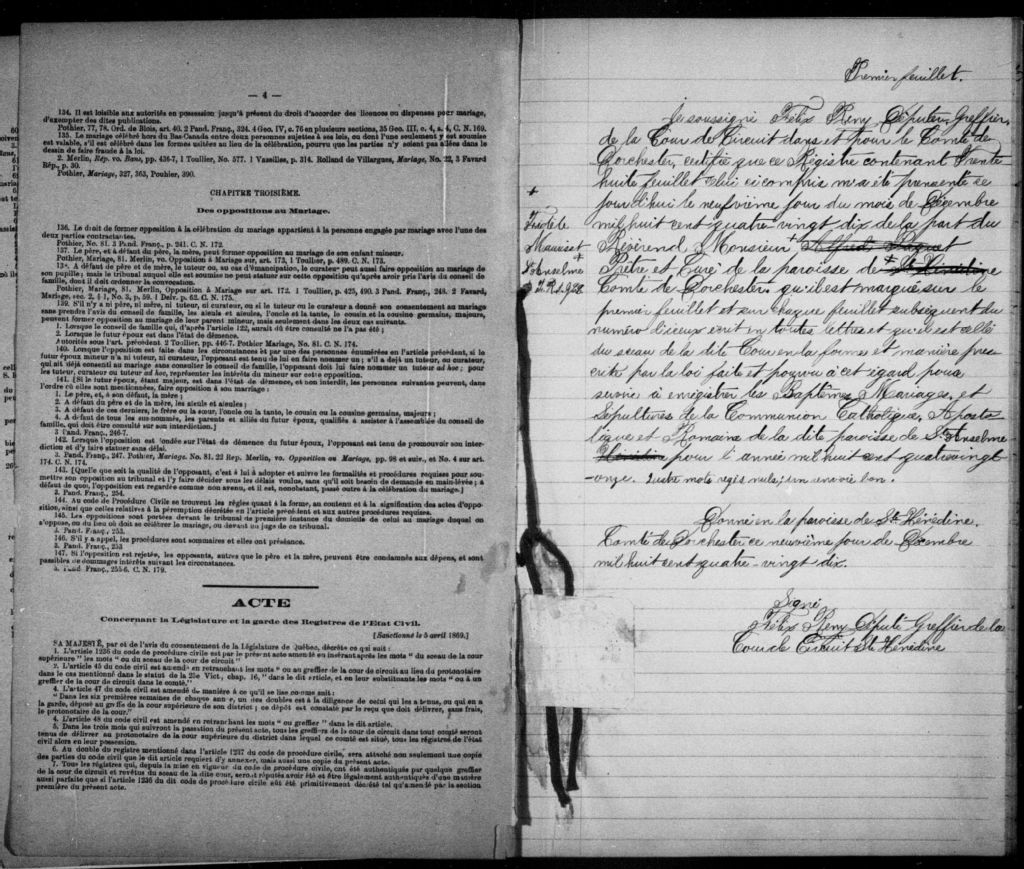 — 4 —
134. Il est loisible aux autorités en possession jusqu'à présent du droit d'accorder des licences ou dispenses pour mariage,
d'exempter des dites publications.
Pothier, 77, 78. Ord. de Blois, art. 40. 2 Pand. Franç., 324. 4 Geo. IV, c. 76 en plusieurs sections, 35 Geo. III, c. 4, s. 4, C. N. 169.
135. Le mariage célébré hors du Bas-Canada entre deux personnes sujettes à ses lois, ou dont l'une seulement y est soumise
est valable, s'il est célébré dans les formes usitées au lieu de la célébration, pourvu que les parties n'y soient pas allées dans le
dessein de faire fraude à la loi.
2 Merlin, Rép. vo. Bans, pp. 436-7, 1 Toullier, No. 577. 1 Vazeilles, p. 314. Rolland de Villargues, Mariage, No. 22, 3 Favard
Rép., p. 30.
Pothier, Mariage, 327, 363, Pouhier, 390.
CHAPITRE TROISIÈME.
Des oppositions au Mariage.
136. Le droit de former opposition à la célébration du mariage appartient à la personne engagée par mariage avec l'une des
deux parties contractantes.
Pothier, No. 81. 3 Pand. Franç., p. 241. C. N. 172.
137. Le père, et à défaut du père, la mère, peut former opposition au mariage de son enfant mineur.
Pothier, Mariage, 81. Merlin, vo. Opposition à Mariage sur art. 173, 1 Toullier, p. 489. C. N. 173.
13*. A défaut de père et de mère, le tuteur ou, au cas d'émancipation, le curateur peut aussi faire opposition au mariage de
son pupille; mais le tribunal auquel elle est soumise ne peut statuer sur cette opposition qu'après avoir pris l'avis du conseil de
famille, dont il doit ordonner la convocation.
Pothier, Mariage, 81, Merlin, Opposition à Mariage sur art. 172. 1 Toullier, p. 425, 490. 3 Pand. Franç., 248. 2 Favard,
Mariage, sec. 2, § 1, No. 3, p. 59. 1 Delv. p. 62. C. N. 175.
139. S'il n'y a ni père, ni mère, ni tuteur, ni curateur, ou si le tuteur ou le curateur a donné son consentement au mariage
sans prendre l'avis du conseil de famille, les aïeuls et aïeules, l'oncle et la tante, le cousin et la cousine germains, majeurs,
peuvent former opposition au mariage de leur parent mineur, mais seulement dans les deux cas suivants.
1. Lorsque le conseil de famille qui, d'après l'article 122, aurait dû être consulté ne l'a pas été;
2. Lorsque le futur époux est dans l'état de démence.
Autorités sous l'art. précédent. 2 Toullier, pp. 446-7. Pothier Mariage, No. 81. C. N. 174.
140. Lorsque l'opposition est faite dans les circonstances et par une des personnes énumérées en l'article précédent, si le
futur époux mineur n'a ni tuteur, ni curateur, l'opposant est tenu de lui en faire nommer un; s'il a déjà un tuteur, ou curateur,
qui ait déjà consenti au mariage sans consulter le conseil de famille, l'opposant doit lui faire nommer un tuteur ad hoc; pour
les tuteur, curateur ou tuteur ad hoc, représenter les intérêts du mineur sur cette opposition.
141. [Si le futur époux, étant majeur, est dans l'état de démence, et non interdit, les personnes suivantes peuvent, dans
l'ordre où elles sont mentionnées, faire opposition à son marriage:
1. Le père, et, à son défaut, la mère;
2. A défaut du père et de la mère, les aïeuls et aïeules;
3. A défaut de ces derniers, le frère ou la sœur, l'oncle ou la tante, le cousin ou la cousine germains, majeurs;
4. A défaut de tous les sus-nommés, les parents et alliés du futur époux, qualifiés à assister à l'assemblée du conseil de
famille, qui doit être consulté sur son interdiction.]
3 Pand. Franç., 246-7.
142. Lorsque l'opposition est fondée sur l'état de démence du futur époux, l'opposant est tenu de promouvoir son inter-
diction et d'y faire statuer sans délai.
3. Pand. Franç., 247. Pothier, Mariage, No. 81. 22 Rep. Merlin, vo. Opposition au Mariage, pp. 98 et suiv., et No. 4 sur art.
174. C. N. 174.
143. [Quelle que soit la qualité de l'opposant, c'est à lui à adopter et suivre les formalités et procédures requises pour sou-
mettre son opposition au tribunal et l'y faire décider sous les délais voulus, sans qu'il soit besoin de demande en main-levée; à
défaut de quoi, l'opposition est regardée comme non avenu, et il est, nonobstant, passé outre à la célébration du mariage.]
3. Pand. Franç., 254.
144. Au code de Procédure Civile se trouvent les règles quant à la forme, au contenu et à la signification des actes d'oppo-
sition, ainsi que celles relatives à la péremption décrétée en l'article précédent et aux autres procédures requises.
145. Les oppositions sont portées devant le tribunal de première instance du domicile de celui au mariage duquel on
s'oppose, ou du lieu où doit se célébrer le mariage, ou devant un juge de ce tribunal.
3. Pand. Franç., 253.
146. S'il y a appel, les procédures sont sommaires et elles ont préséance.
3. Pand. Franç., 253
147. Si l'opposition est rejetée, les opposants, autres que le père et la mère, peuvent être condamnés aux dépens, et sont
passibles de dommages intérêts suivant les circonstances.
3. Pand. Franç., 255-6. C. N. 179.
ACTE
Concernant la Législature et la garde des Registres de l'Etat Civil.
[Sanctionné le 5 avril 1869.]
SA MAJESTÉ, par et de l'avis du consentement de la Législature de Québec, décrète ce qui suit:
1. L'article 1236 du code de procédure civile est par le présent acte amendé en insérant après les mots " du sceau de la cour
supérieure " les mots " ou du sceau de la cour de circuit "
2. L'article 45 du code civil est amendé en retranchant les mots " ou au greffier de la cour de circuit au lieu du protonotaire
dans le cas mentionné dans le statut de la 25e Vict., chap. 16, " dans le dit article, et en leur substituant les mots " ou à un
greffier de la cour de circuit dans le comté."
4. L'article 47 du code civil est amendé de manière à ce qu'il se lise comme suit:
" Dans les six premières semaines de chaque année, un des doubles est à la diligence de celui qui les a tenus, ou qui en a
la garde, déposé au greffe de la cour supérieure de son district; ce dépôt est constaté par le reçu que doit délivrer, sans frais,
le protonotaire de la cour."
4. L'article 48 du code civil est amendé en retranchant les mots " ou greffier " dans le dit article.
5. Dans les trois mois qui suivront la passation du présent acte, tous les greffiers de la cour de circuit dans tout comté seront
tenus de délivrer au protonotaire de la cour supérieure du district dans lequel ce comté est situé, tous les régistres de l'état
civil alors en leur possession.
6. Au double du registre mentionné dans l'article 1237 du code de procédure civile, sera attaché non seulement une copie
des parties du code civil que le dit article requiert d'y annexer, mais aussi une copie du présent acte.
7. Tous les régistres qui, depuis la mise en vigueur du code de procédure civile, ont été authentiqués par quelque greffier
de la cour de circuit et revêtus du sceau de la dite cour, seront réputés avoir été et être légalement authentiqués d'une manière
aussi parfaite que si l'article 1236 du dit code de procédure civile eût été primitivement décrété tel qu'amendé par la section
première du présent acte.
Premier feuillet.
Je soussigné Félix Rémy Députey Greffier
de la Cour de Circuit dans et pour le Comté de
Dorchester, certifie que ce Régistre contenant trente
huite feuillet celui ci compris m'a été présenté ce
jourd'hui le neuvième jour du mois de Décembre
mil huit cent quatre vingt dix de la part du
Révérend Monsieur + Alfred Paquet
Prêtre et Curé de la paroisse de + Ste Hénédine
Comté de Dorchester qu'il est marqué sur le
premier feuillet et sur chaque feuillet subséquent du
numéro d'iceux écrit en toutes lettres et qu'il est cellé
du sceau de la dite Cour en la forme et manière pres-
crite par la loi faite et pourvu à cet égard pour
servir à enregistrer les Baptêmes, Mariages, et
Sépultures de la Communion Catholique, Aposto
lique et Romaine de la dite paroisse de St Anselme
Hénédine pour l'année mil huit cent quatre vingt
-onze. Quatre mots rayés nuls; un renvoi bon.
+
Théotele
Mauriset
+
St Anselme
Donné en la paroisse de Ste Hénédine.
Comté de Dorchester ce neuvième jour de Décembre
mil huit cent quatre-vingt dix.
Signé
Félix Rémy Député Greffier de la
Cour de Circuit Ste Hénédine